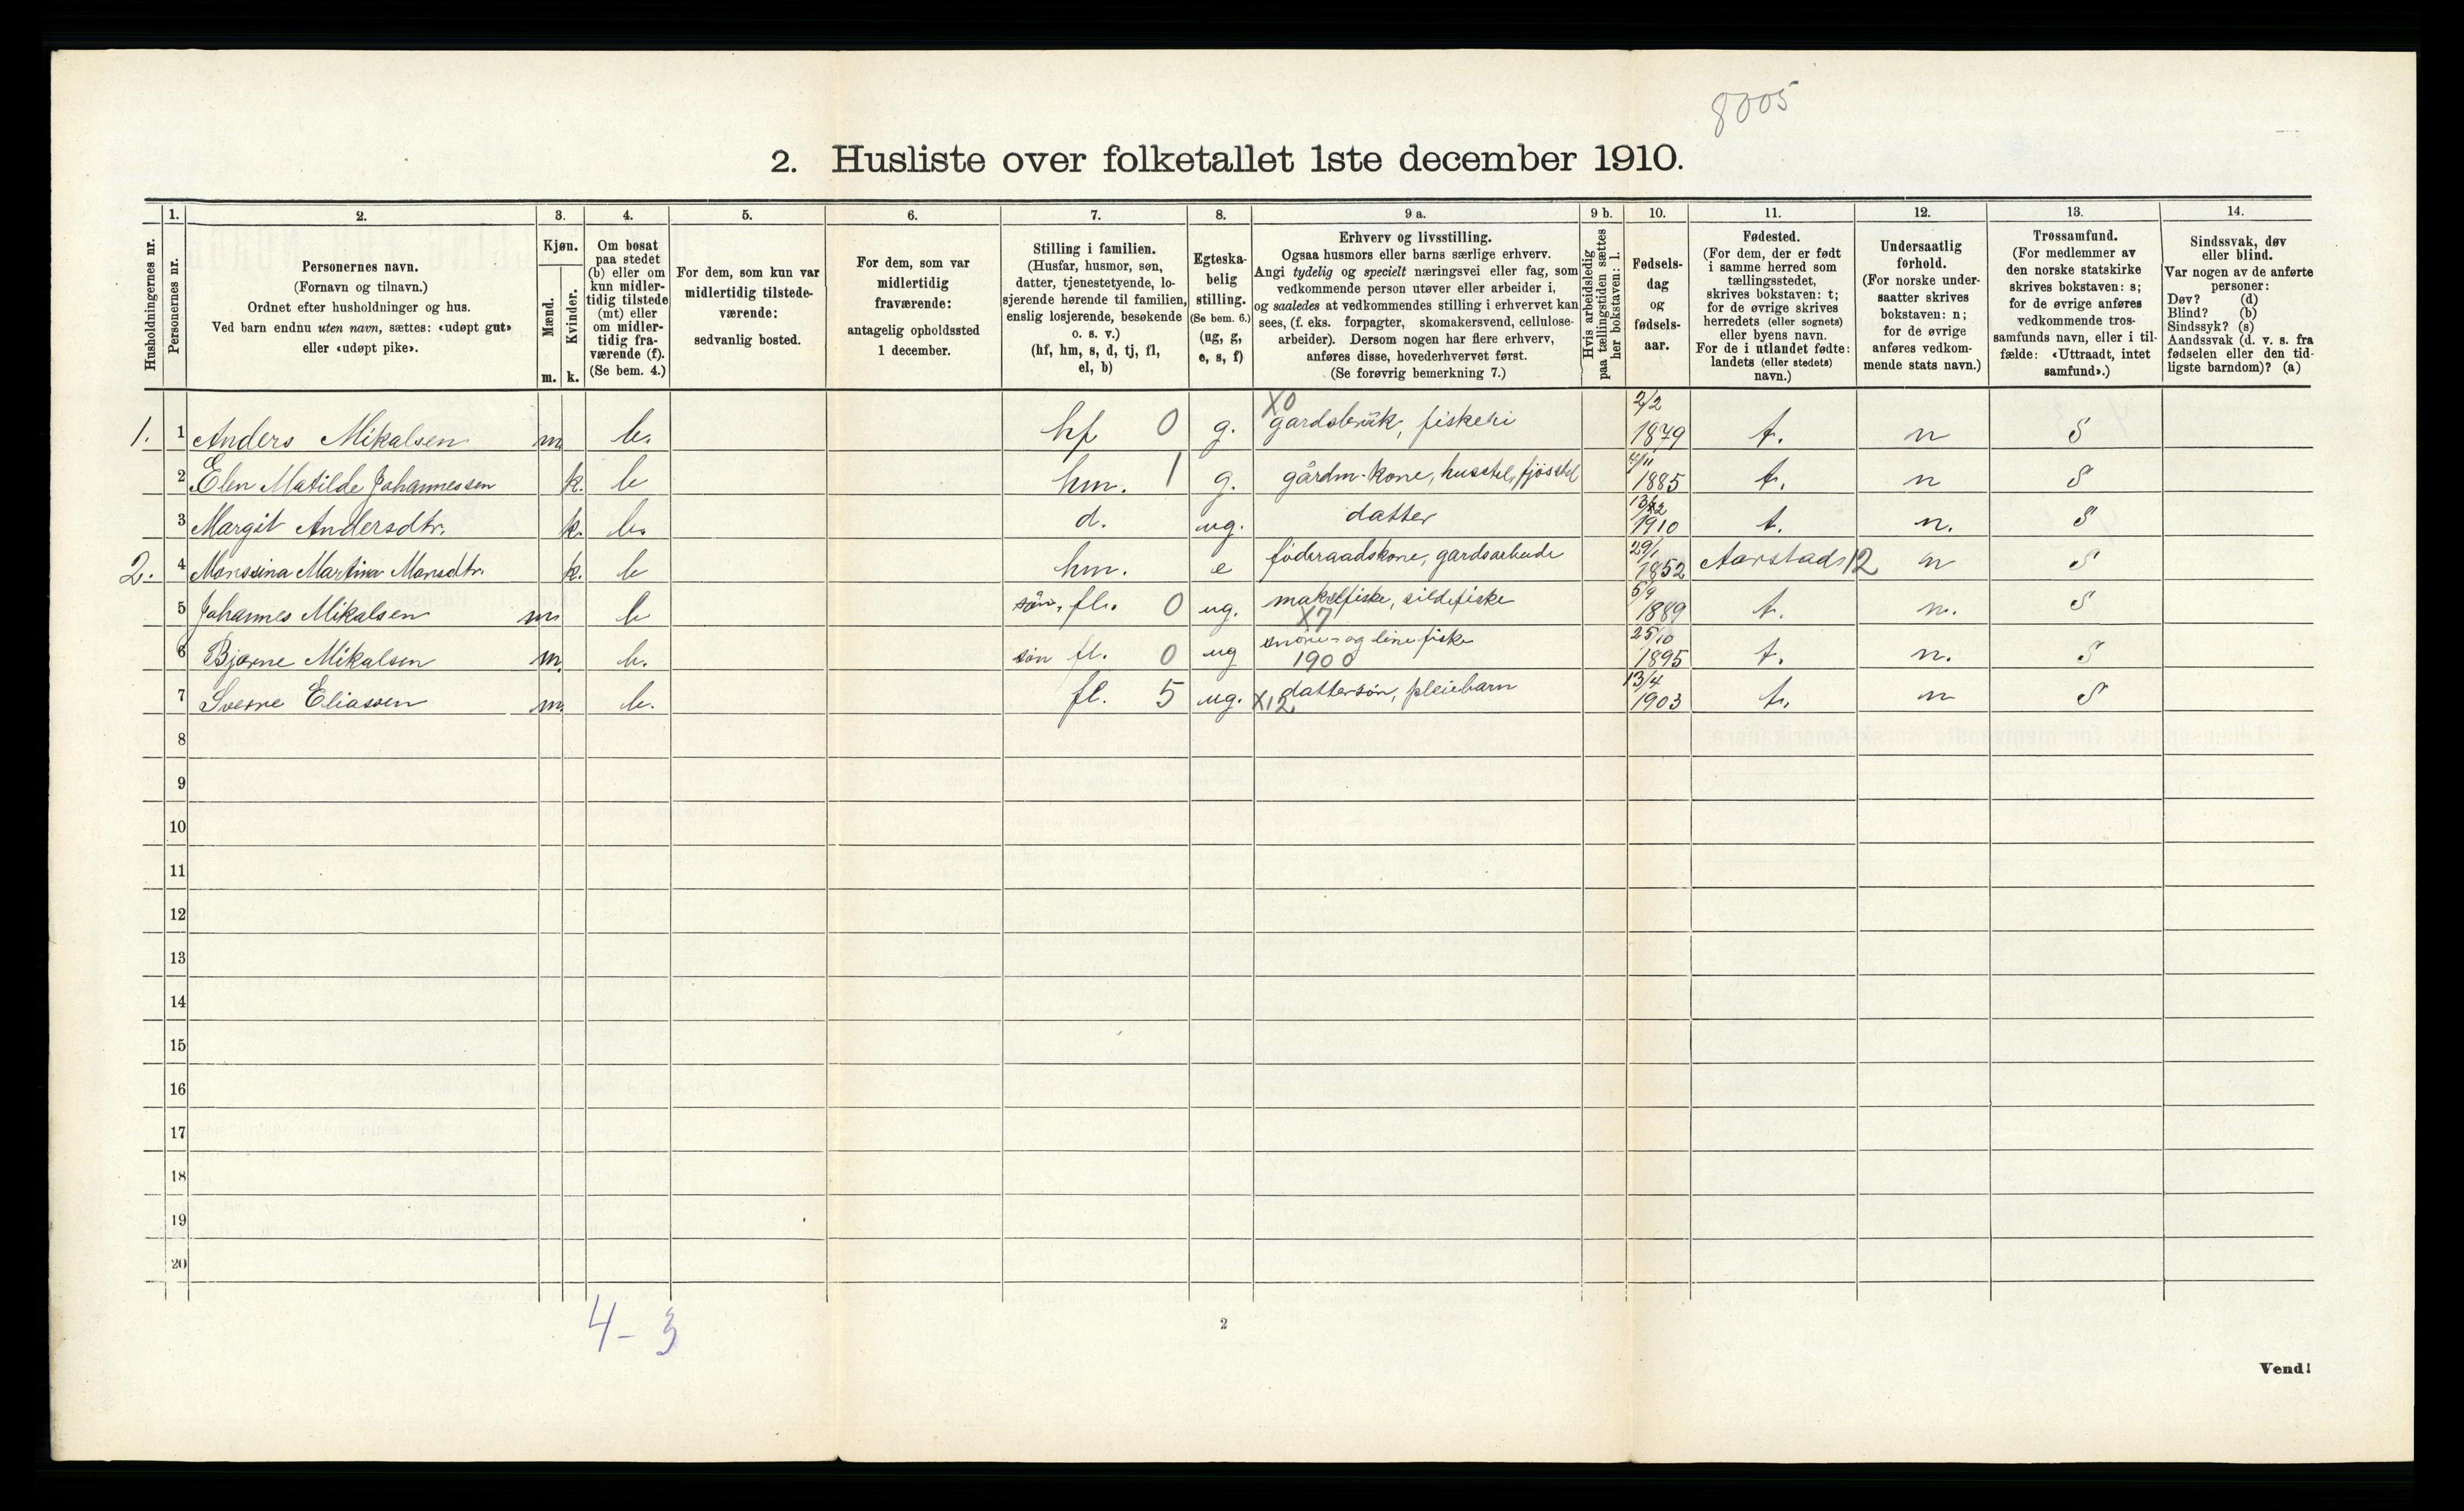 8005
2. Husliste over folketallet 1ste december 1910.
Husholdningernes nr.
1.
Personernes nr.
2.
Personernes navn.
(Fornavn og tilnavn.)
Ordnet efter husholdninger og hus.
Ved barn endnu uten navn, sættes: «udøpt gut»
eller «udøpt pike».
3.
Kjøn.
Mænd.
Kvinder.
m. k.
4.
Om bosat
paa stedet
(b) eller om
kun midler-
tidig tilstede
(mt) eller
om midler-
tidig fra-
værende (f).
(Se bem. 4.)
5.
For dem, som kun var
midlertidig tilstede-
værende:
sedvanlig bosted.
6.
For dem, som var
midlertidig
fraværende:
antagelig opholdssted
1 december.
7.
Stilling i familien.
(Husfar, husmor, søn,
datter, tjenestetyende, lo-
sjerende hørende til familien,
enslig losjerende, besøkende
o. s. v.)
(hf, hm, s, d, tj, fl,
el, b)
8.
Egteska-
belig
stilling.
(Se bem. 6.)
(ug, g,
e, s, f)
9 a.
Erhverv og livsstilling.
Ogsaa husmors eller barns særlige erhverv.
Angi tydelig og specielt næringsvei eller fag, som
vedkommende person utøver eller arbeider i,
og saaledes at vedkommendes stilling i erhvervet kan
sees, (f. eks. forpagter, skomakersvend, cellulose-
arbeider). Dersom nogen har flere erhverv,
anføres disse, hovederhvervet først.
(Se forøvrig bemerkning 7.)
9 b.
Hvis arbeidsledig
paa tællingstiden sættes
her bokstaven: l.
10.
Fødsels-
dag
og
fødsels-
aar.
11.
Fødested.
(For dem, der er født
i samme herred som
tællingsstedet,
skrives bokstaven: t;
for de øvrige skrives
herredets (eller sognets)
eller byens navn.
For de i utlandet fødte:
landets (eller stedets)
navn.)
12.
Undersaatlig
forhold.
(For norske under-
saatter skrives
bokstaven: n;
for de øvrige
anføres vedkom-
mende stats navn.)
13.
Trossamfund.
(For medlemmer av
den norske statskirke
skrives bokstaven: s;
for de øvrige anføres
vedkommende tros-
samfunds navn, eller i til-
fælde: «Uttraadt, intet
samfund».)
14.
Sindssvak, døv
eller blind.
Var nogen av de anførte
personer:
Døv? (d)
Blind? (b)
Sindssyk? (s)
Aandssvak (d. v. s. fra
fødselen eller den tid-
ligste barndom)? (a)
1. 1 Anders Mikalsen m b. hf 0 g. X0 gardsbruk, fiskeri 2/2 1879 t. n S
2 Elen Matilde Johannessen k. b hm. 1 g. gårdm. kone, husstel, fjøsstel 1885 t. n S
3 Margit Andersdtr. k. b. d. ug. datter 1910 t. n. S
2. 4 Monsina Martina Monsdtr. k. b hm. e føderaadskone, gardsarbeide 29/1 1852 Aarstad 12 n S
5 Johannes Mikalsen m b søn, fl. 0 ug. makrelfiske, sildefiske X7 5/9 1889 t. n. S
6 Bjarne Mikalsen m b. søn fl. 0 ug snøre- og linefiske 1900 25/10 1895 t. n. S
7 Sverre Eliassen m b. fl. 5 ug. X12 dattersøn, pleiebarn 13/4 1903 t. n S
8
9
10
11
12
13
14
15
16
17
18
19
20
4-3
2
Vend!